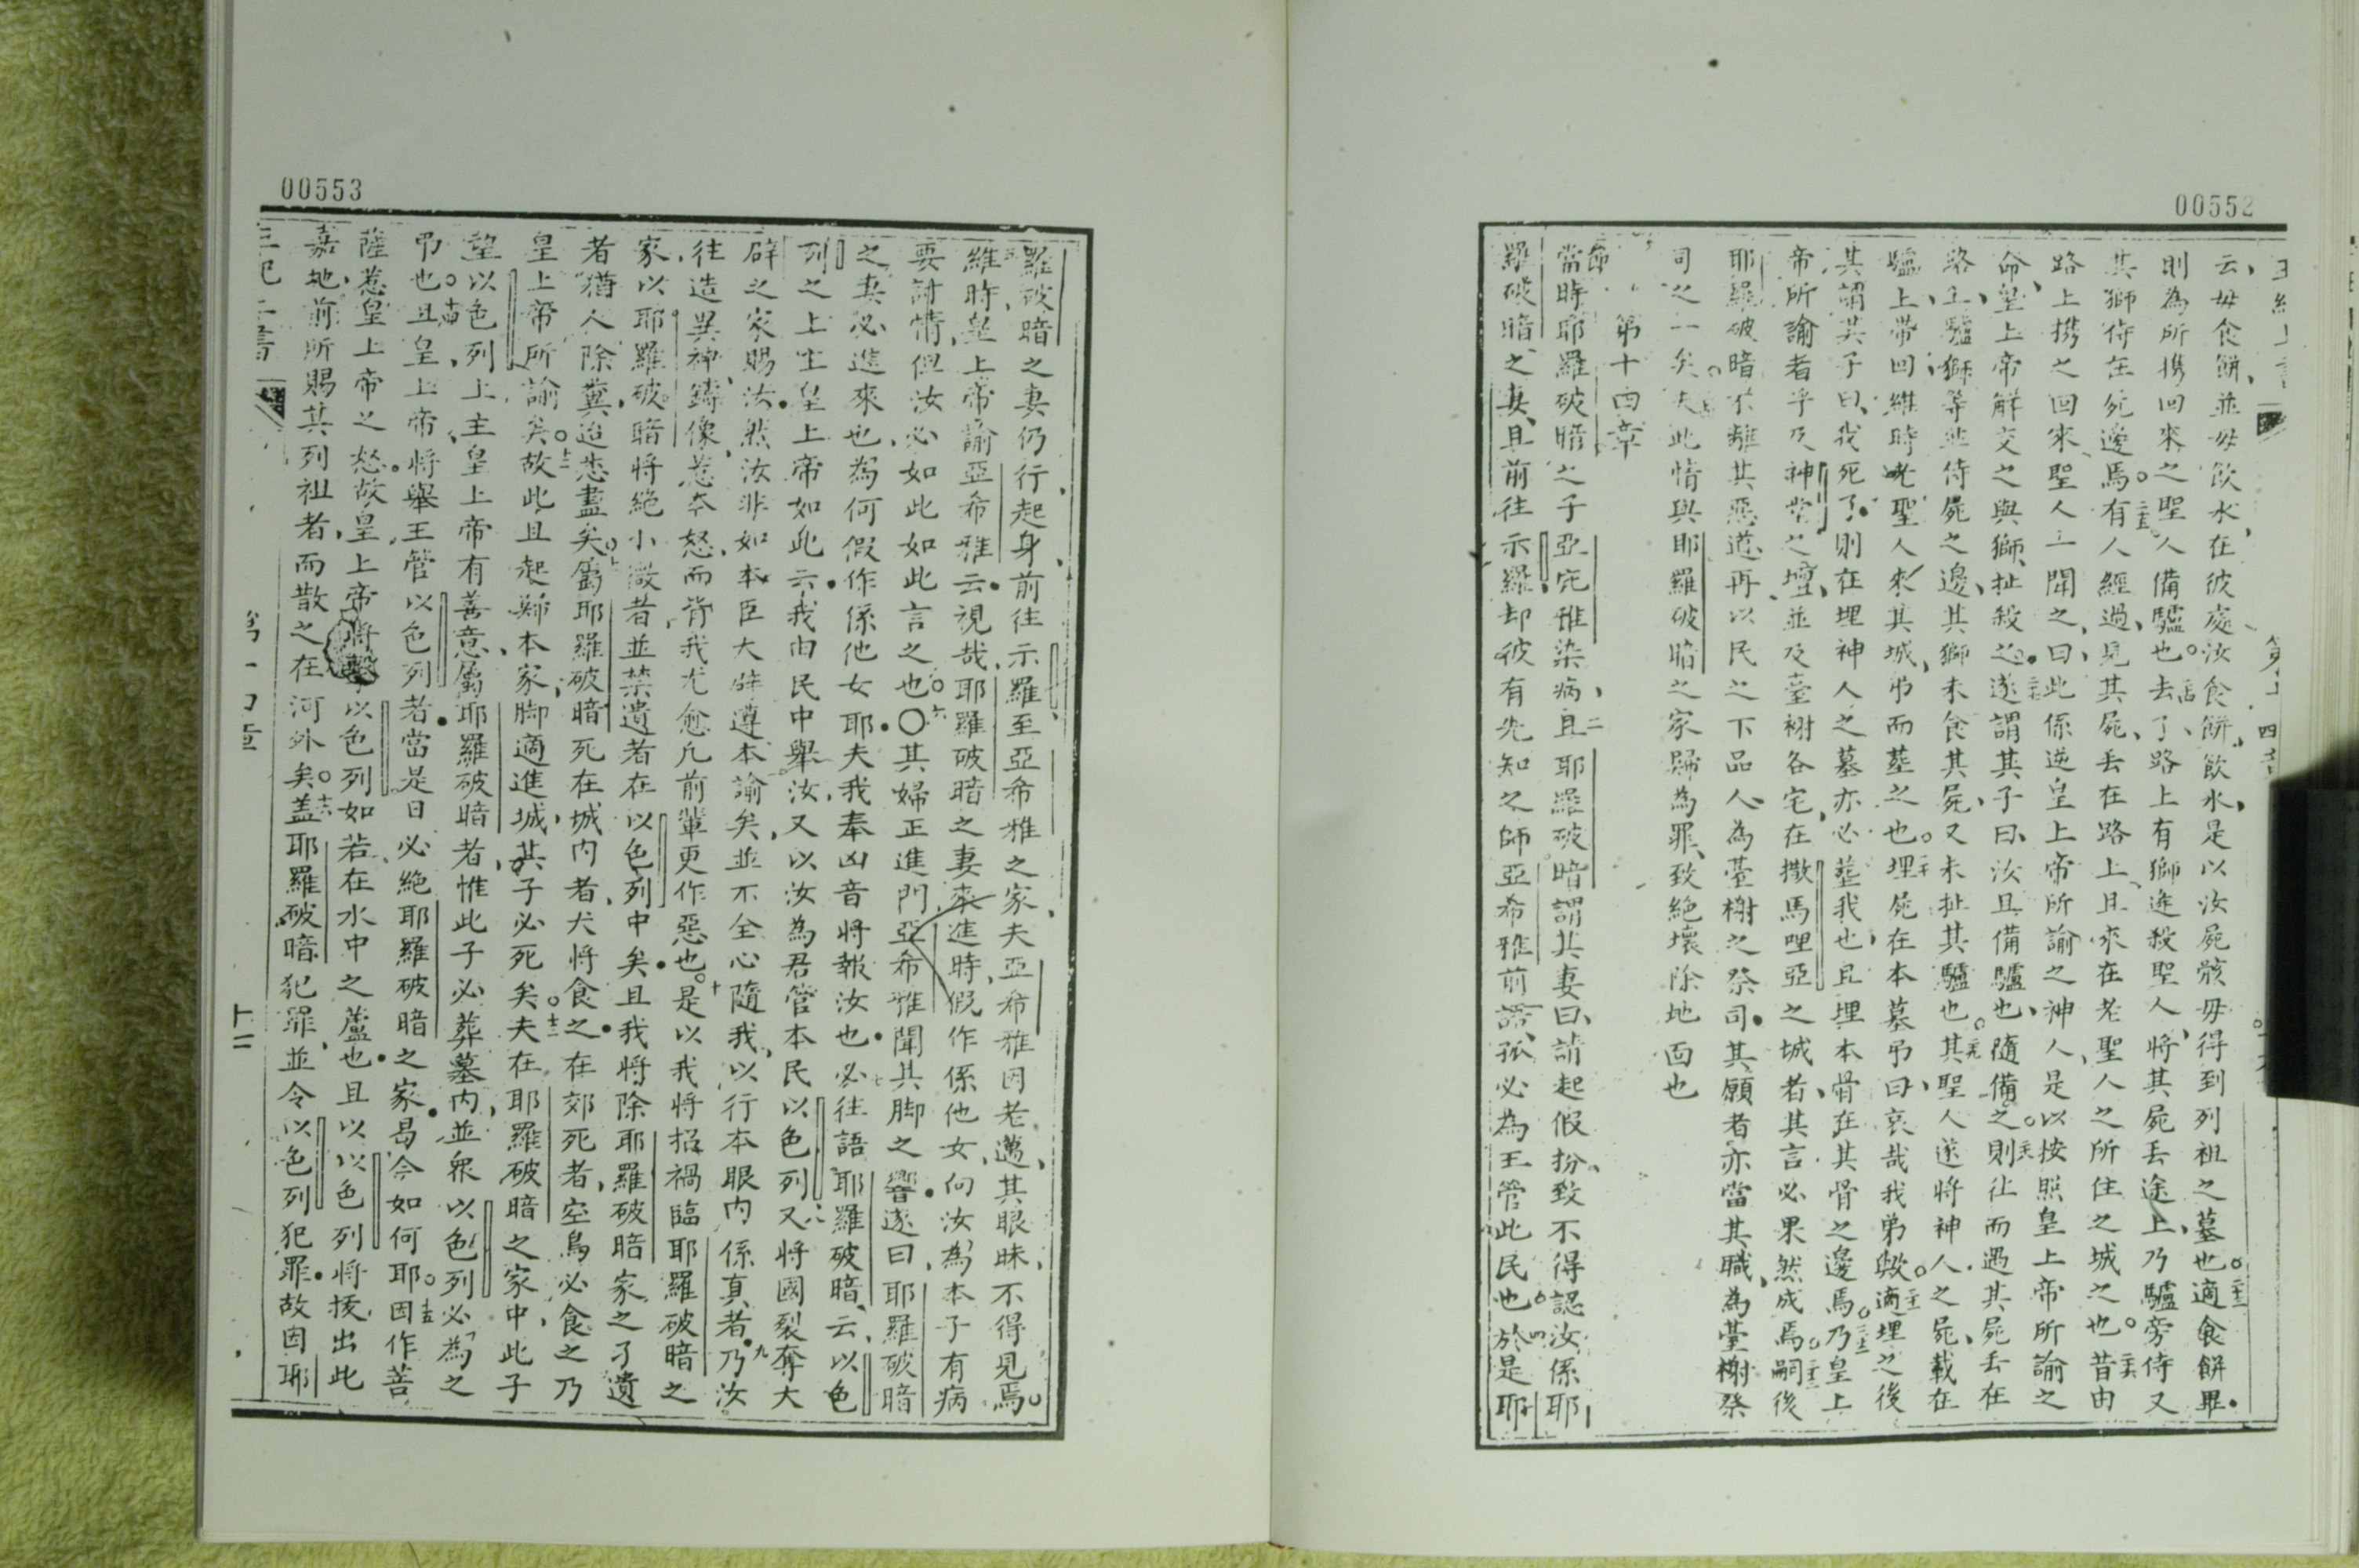 00552
云毋食餅並毋飲水在彼處汝食餅飲水是以汝屍骸毋得到列祖之墓也適食餅畢
則為所携回來之聖人備驢也去了路上有獅進殺聖人將其屍丢途上乃驢旁侍又
其獅侍在死邊焉有人經過見其屍丢在路上且來在老聖人之所住之城之也昔由
路上携之回來聖人一聞之曰此係逆皇上帝所諭之神人是以按照皇上帝所諭之
命皇上帝解交之與獅扯殺之遂謂其子曰汝且備驢也隨備之則往而遇其屍丢在
路上驢獅等並侍屍之邊其獅未食其屍又未扯其驢也其聖人遂將神人之屍載在
驢上帶回維時老聖人來其城吊而塟之也埋屍在本墓吊曰哀哉我弟歟適埋之後
其謂其子曰我死了則在埋神人之墓亦必塟我也且埋本骨在其骨之邊焉乃皇上
帝所諭者乎及神堂之壇並及臺榭各宅在撒馬哩亞之城者其言必果然成焉嗣後
耶羅破暗不離其惡道再以民之下品人為臺榭之祭司其願者亦當其職為臺榭祭
司之一矣夫此情與耶羅破暗之家歸為罪致絶壞除地面也
第十四章
節
當時耶羅破暗之子亞庇雅染病且耶羅破暗謂其妻曰請起假扮致不得認汝係耶
羅破暗之妻且前往示羅却彼有先知之師亞希雅前語孤必為王管此民也於是耶
00553
羅破暗之妻仍行起身前往示羅至亞希雅之家夫亞希雅因老邁其眼昧不得見焉
維時皇上帝諭亞希雅云視哉耶羅破暗之妻來進時假作係他女向汝為本子有病
要討情但汝必如此如此言之也〇其婦正進門亞希雅聞其脚之響遂曰耶羅破暗
之妻必進來也為何假作係他女耶夫我奉凶音將報汝也必往語耶羅破暗云以色
列之上主皇上帝如此云我由民中舉汝又以汝為君管本民以色列又將國裂奪大
辟之家賜汝然汝非如本臣大辟遵本諭矣並不全心隨我以行本眼内係真者乃汝
往造異神鑄像惹本怒而背我尤愈凡前輩更作惡也是以我將招禍臨耶羅破暗之
家以耶羅破暗將絶小激者並禁遺者在以色列中矣且我將除耶羅破暗家之孑遺
者猶人除糞迨悉盡矣屬耶羅破暗死在城内者犬將食之在郊死者空鳥必食之乃
皇上帝所諭矣故此且起歸本家脚適進城其子必死矣夫在耶羅破暗之家中此子
望以色列上主皇上帝有善意屬耶羅破暗者惟此子必葬墓内並眾以色列必為之
吊也且皇上帝將舉王管以色列者當是日必絶耶羅破暗之家曷今如何耶因作菩
薩惹皇上帝之怒故皇上帝將擊以色列如若在水中之蘆也且以以色列將拔出此
嘉地前所賜其列祖者而散之在河外矣蓋耶羅破暗犯罪並令以色列犯罪故因耶